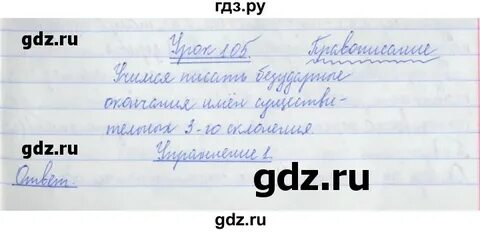 гдз.ру
Урок 105 Правописание
gdz.ru gdz.ru
Учимся писать безударные
окончания имён существи-
тельных 3-го склонения.
Упражнение 1.
gdz.ru
Ответ.
gdz.ru
gdz.ru